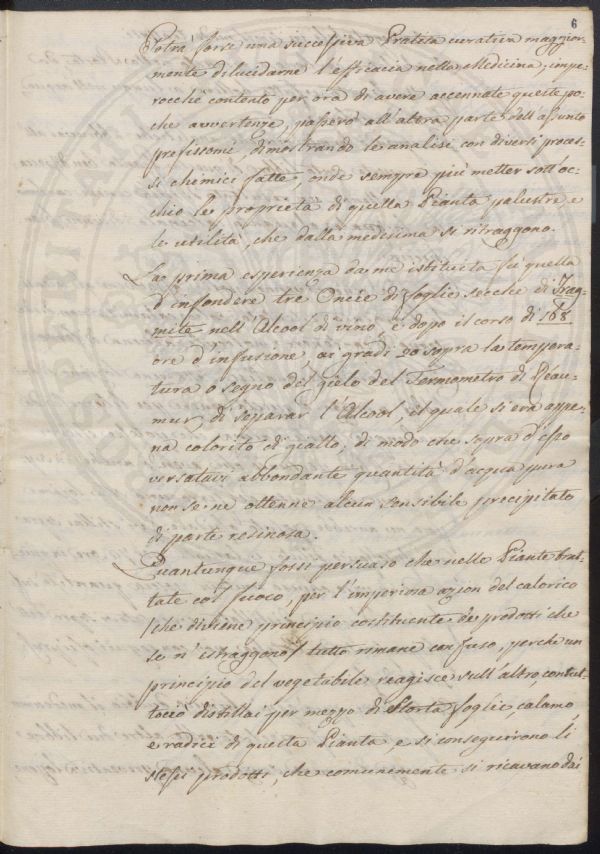 6
Potrà forse una successiva Pratica curativa maggior-
mente dilucidarne l'efficacia nella Medicina, impe-
rocchè contento per ora di avere accennate queste po-
che avvertenze, passerò all'altra parte dell'assunto
prefissomi, dimostrando le analisi con diversi proces-
si chimici fatte, onde sempre più metter sott'oc-
chio le proprietà di quella Pianta palustre, e
le utilità, che dalla medesima si ritraggono.
La prima esperienza da me istituita fu quella
d'infondere tre Oncie di foglie secche di Frag-
mite nell'Alcool di vino, e dopo il corso di 168.
ore d'infusione, ai gradi 20 sopra la tempera-
tura o segno del gielo del Termometro di Réau-
mur, di separar l'Alcool, il quale si era appe-
na colorito di giallo, di modo che sopra d'esso
versatavi abbondante quantità d'acqua pura
non se ne ottenne alcun sensibile precipitato
di parte resinosa.
Quantunque fossi persuaso che nelle Piante trat-
tate col fuoco, per l'imperiosa azion del calorico
/che diviene principio costituente de prodotti che
se n'estraggono/ tutto rimane confuso, perchè un
principio del vegetabile reagisce sull'altro, contut-
tociò distillai per mezzo di Storta foglie, calamo,
e radici di questa Pianta, e si conseguirono li
stessi prodotti, che comunemente si ricavano dai